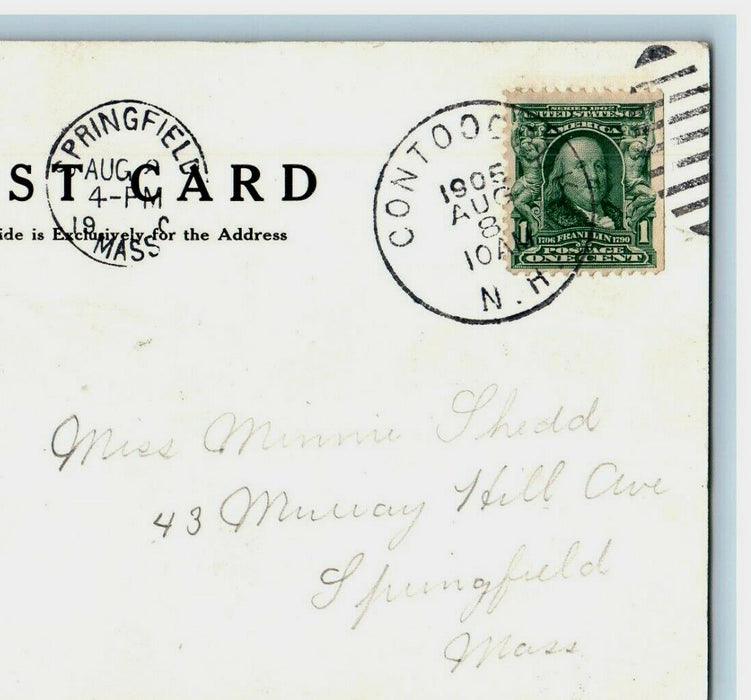 SPRINGFIELD
AUG 8
4-PM
19
MASS
ST CARD
ide is Exclusively for the Address
CONTOOC
1905
AUG
8
10AM
N.H.
SERIES 1902
UNITED STATES OF
AMERICA
1 1
1706 FRANKLIN 1790
POSTAGE
ONE CENT
Miss Minnie Shedd
43 Murray Hill Ave
Springfield
Mass